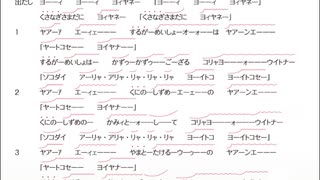 出だし　ヨーーィ　ヨーーィ　ヨィヤネー　「ヨーーィ　ヨーーィ　ヨィヤネー」
くさなぎさまだに　ヨィヤネー　「くさなぎさまだに　ヨィヤネー」
1　ヤアーｱ　エーィェーーー　するがーめいしょーオーォーーは　ヤアーンエーーー
「ヤートコセーー　ヨイヤナーー」
するがーめいしょはーー　かずぅーかずぅーーごーざる　コリャヨーーーォーーーウイトナー
「ソコダイ　アーリャ・アリャ・リャ・リャ　ヨーイトコ　ヨーイトコセーー」
2　ヤアーｱ　エーィェーーー　くにのーしずめーエーェーーの　ヤアーンエーーー
「ヤートコセーー　ヨイヤナーー」
くにのーしずめの　かみぃとーォーーしーーて　コリャヨーーーォーーーウイトナー
「ソコダイ　アーリャ・アリャ・リャ・リャ　ヨーイトコ　ヨーイトコセーー」
3　ヤアーｱ　エーィェーーー　やまとーたけるーウーゥーーの　ヤアーンエーーー
「ヤートコセーー　ヨイヤナーー」